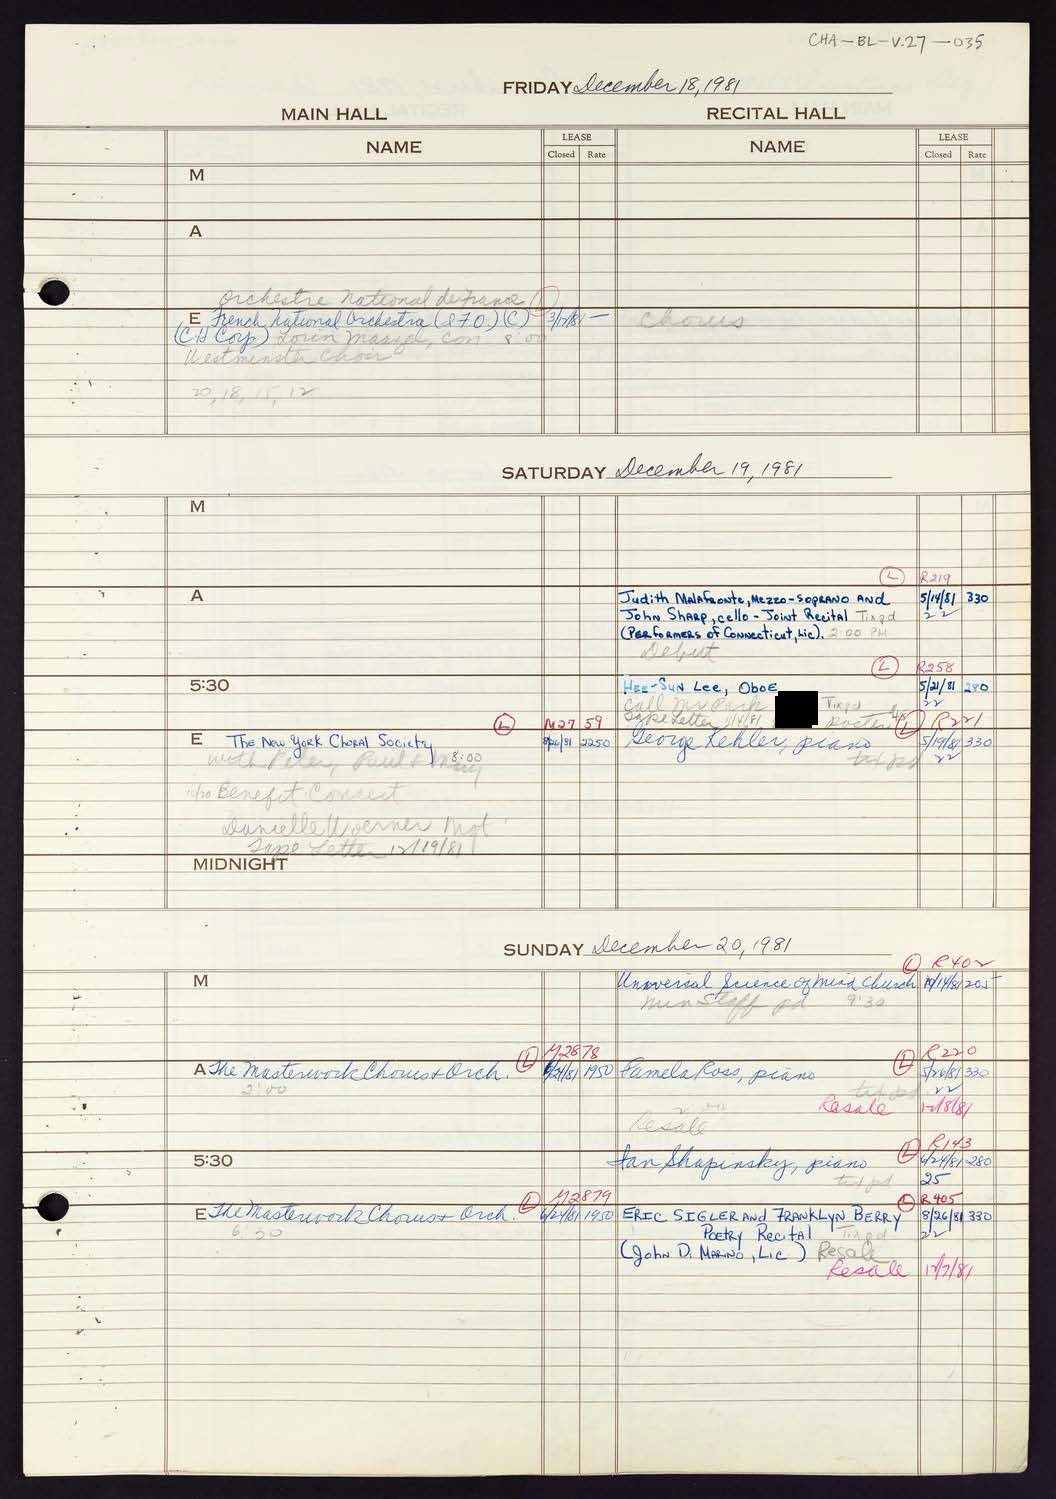 CHA-BL-V.27-035
FRIDAY December 18, 1981
MAIN HALL
RECITAL HALL
NAME
LEASE
Closed Rate
NAME
LEASE
Closed Rate
M
A
Orchestre National de France L
E French National Orchestra (870) (C) 3/17/81 —
Chorus
(CH Corp) Lorin Maazel, con 8:00
Westminster Choir
20, 18, 15, 12
SATURDAY December 19, 1981
M
L R219
A
Judith Malafronte, Mezzo-Soprano and 5/14/81 330
John Sharp, cello - Joint Recital Tix pd 22
(Performers of Connecticut, Lic). 2:00 PM
Debut
L R258
5:30
Hee-Sun Lee, Oboe 5/21/81 280
Call Mr Park Tix pd 22
Tape Letter 11/4/81 poster
L M2759
L R221
E The New York Choral Society 8/26/81 2250
George Kehler, piano 5/19/81 330
with Peter, Paul & Mary 8:00
txt pd 22
10/20 Benefit Concert
Danielle Woerner Mgt
Tape Letter 12/19/81
MIDNIGHT
SUNDAY December 20, 1981
L R402
M
Universal Science of Mind Church 10/14/81 205
min Staff pd 9:30
L M2878
L R220
A The Masterwork Chorus & Orch. 6/24/81 1950
Pamela Ross, piano 5/26/81 330
2:00
txt pd 22
Resale 12/8/81
2:00
Resale
L R143
5:30
Ian Shapinsky, piano 6/24/81 280
txt pd 25
L M2879
L R405
E The Masterwork Chorus & Orch. 6/24/81 1950
Eric Sigler and Franklyn Berry 8/26/81 330
6:30
Poetry Recital Tix pd 22
(John D. Marino, Lic) Resale
Resale 12/7/81